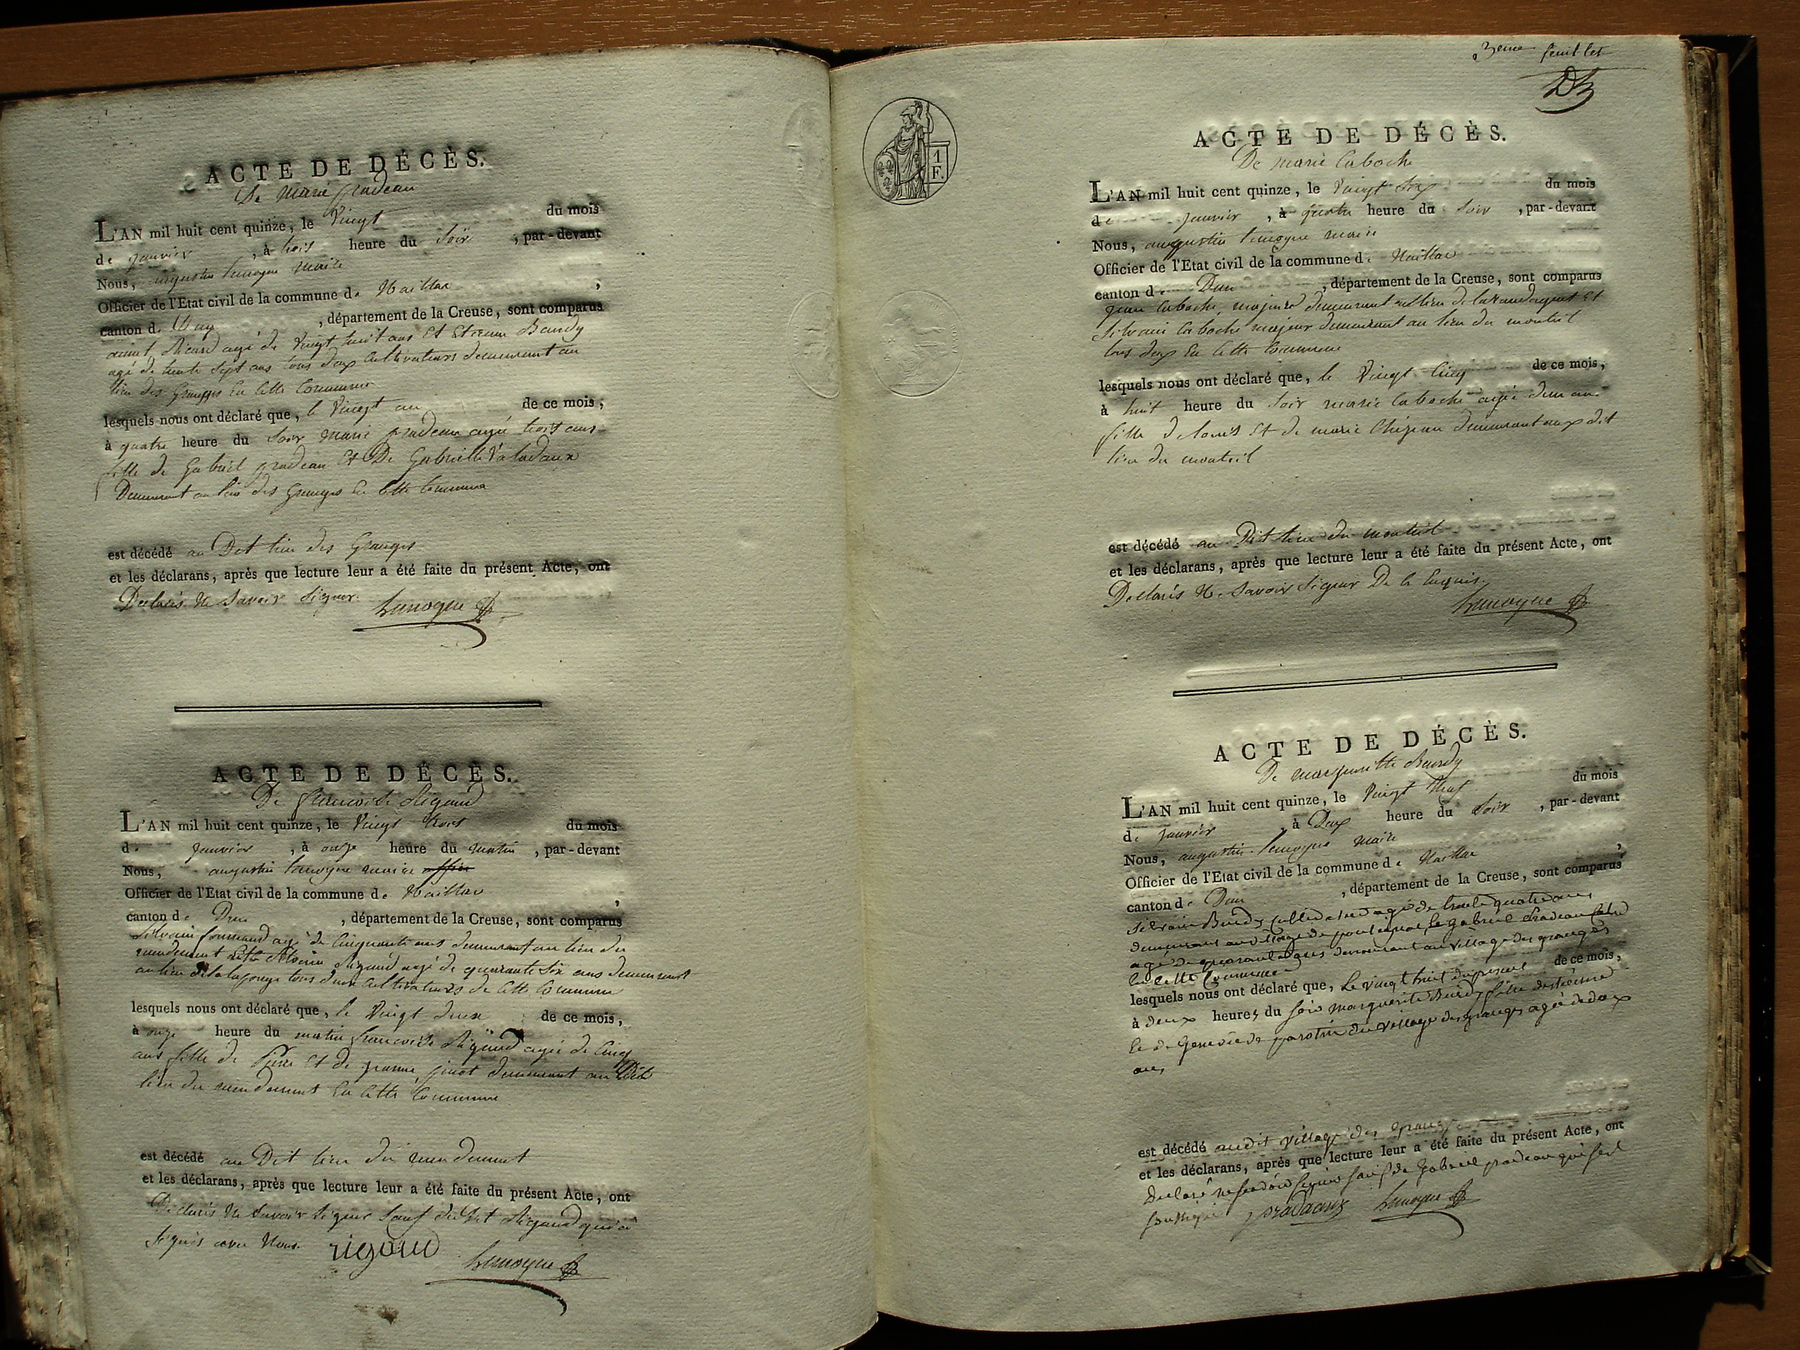 ACTE DE DÉCÈS.
De Marie pradeau
L'AN mil huit cent quinze, le Vingt du mois
de janvier, à trois heure du Soir, par-devant
Nous, augustin lemoyne maire
Officier de l'Etat civil de la commune de Naillac,
canton de Dun, département de la Creuse, sont comparus
agé de Vingt huit ans Et Etienne Bardy
agé de trente Sept ans tous deux Cultivateurs demeurant au
lieu des Granges En Cette Commune
lesquels nous ont déclaré que, le Vingt un de ce mois,
à quatre heure du Soir Marie pradeau agée trois ans
fille de Gabriel pradeau Et De Gabrielle Valadaux
Demeurant au lieu des Granges En Cette Commune
est décédé au Dit lieu des Granges
et les déclarans, après que lecture leur a été faite du présent Acte, ont
Declarés Ne Savoir Signer. Lemoyne
ACTE DE DÉCÈS.
De francoise Rigaud
L'AN mil huit cent quinze, le Vingt trois du mois
de janvier, à onze heure du matin, par-devant
Nous, augustin lemoyne maire
Officier de l'Etat civil de la commune de Naillac,
canton de Dun, département de la Creuse, sont comparus
Silvain agé de Cinquante ans demeurant au lieu du
Rigaud agé de quarante Six ans demeurant
au lieu de tous deux Cultivateurs de Cette Commune
lesquels nous ont déclaré que, le Vingt deux de ce mois,
à onze heure du matin francoise Rigaud agée de Cinq
ans fille de Pierre Et de jeanne pinot demeurant au Dit
lieu du En Cette Commune
est décédé au Dit lieu du
et les déclarans, après que lecture leur a été faite du présent Acte, ont
Declarés Ne Savoir Signer Sauf Ledit Rigaud qui a
Signés avec Nous. rigaud Lemoyne
3eme feuillet
1 F.
ACTE DE DÉCÈS.
De marie Caboche
L'AN mil huit cent quinze, le Vingt Six du mois
de janvier, à quatre heure du Soir, par-devant
Nous, augustin lemoyne maire
Officier de l'Etat civil de la commune de Naillac
canton de Dun, département de la Creuse, sont comparus
jean Caboche, majeur demeurant au lieu de Et
Silvain Caboche majeur demeurant au lieu du monteil
tous deux En Cette Commune
lesquels nous ont déclaré que, le Vingt Cinq de ce mois,
à huit heure du Soir marie Caboche agée d'un an
fille de louis Et de marie Chezeau demeurant aux dit
lieu du monteil
est décédé au Dit lieu du monteil
et les déclarans, après que lecture leur a été faite du présent Acte, ont
Declarés Ne Savoir Signer De Ce Enquis. Lemoyne
ACTE DE DÉCÈS.
De marguerite Bardy
L'AN mil huit cent quinze, le Vingt Neuf du mois
de janvier à Deux heure du Soir, par-devant
Nous, augustin lemoyne maire
Officier de l'Etat civil de la commune de Naillac,
canton de Dun, département de la Creuse, sont comparus
Silvain Bardy agé de trente quatre ans
demeurant au village de Gabriel Pradeau
agé de quarante ans demeurant au village des granges
En Cette Commune
lesquels nous ont déclaré que, Le vingt huit de ce mois,
à deux heures du Soir marguerite Bardy fille
Et de Genevieve parotin du village des granges agée de deux
ans,
est décédé au dit village des granges
et les déclarans, après que lecture leur a été faite du présent Acte, ont
declaré ne savoir signer sauf de Gabriel pradeau qui
pradeaux Lemoyne